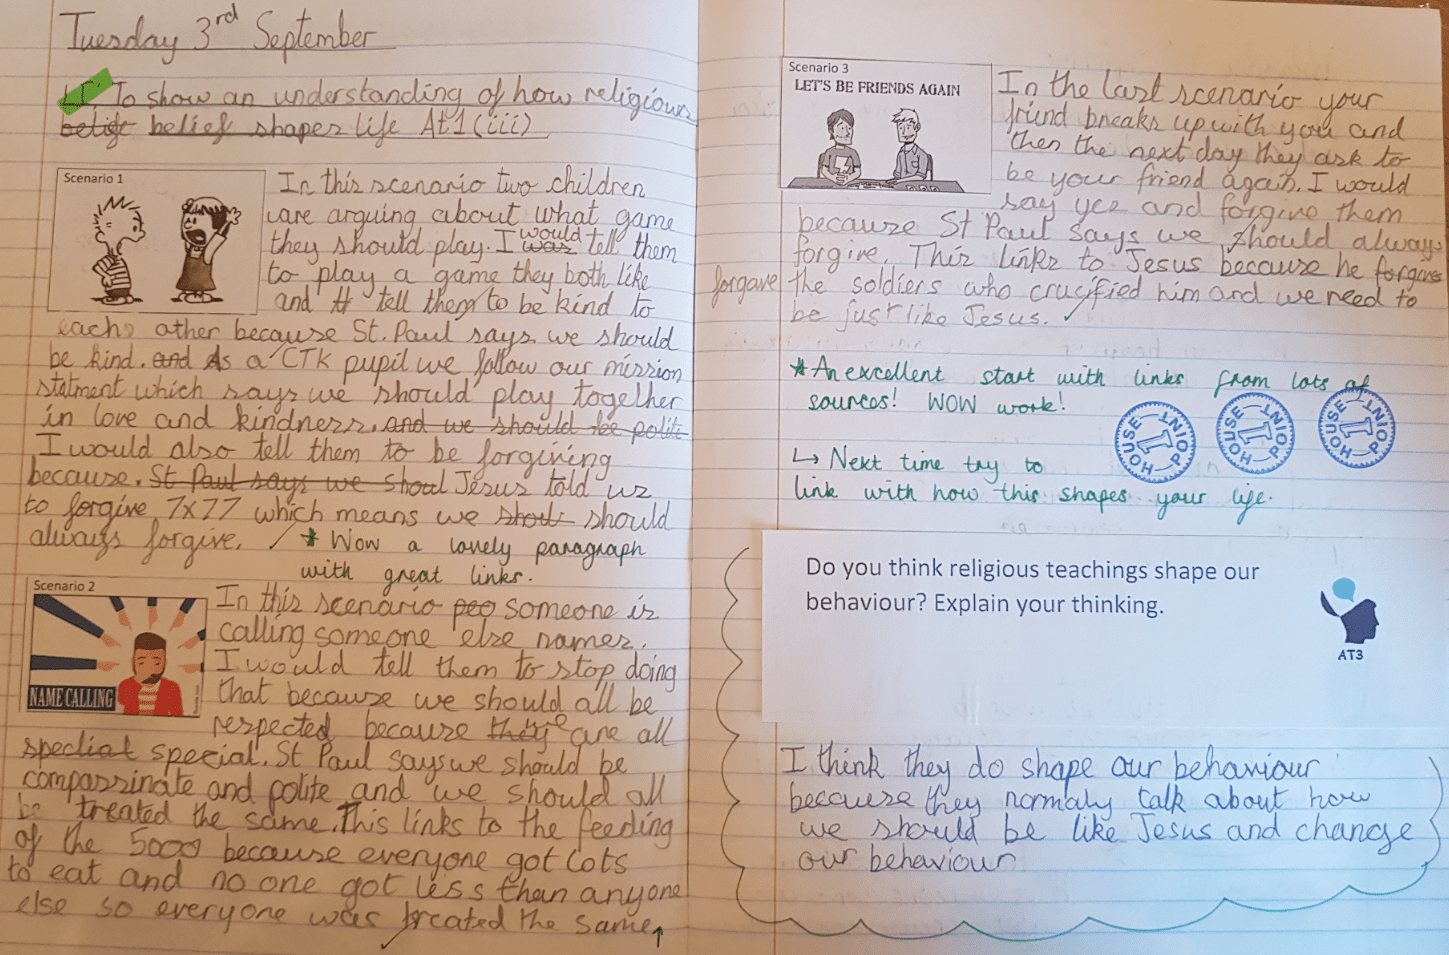 Tuesday 3rd September
LI: To show an understanding of how religious
belief belief shapes life At1 (iii)
Scenario 1
In this scenario two children
are arguing about what game
they should play. I was would tell them
to play a game they both like
and tell them to be kind to
each other because St. Paul says we should
be kind. and As a CTK pupil we follow our mission
statment which says we should play together
in love and kindness. and we should be polite
I would also tell them to be forgiving
because. St Paul says we shoul Jesus told us
to forgive 7x77 which means we shoul should
always forgive.
* Wow a lovely paragraph
with great links.
Scenario 2
NAME CALLING
In this scenario peo someone is
calling someone else names.
I would tell them to stop doing
that because we should all be
respected because we are all
special special. St Paul says we should be
compassinate and polite and we should all
be treated the same. This links to the feeding
of the 5000 because everyone got lots
to eat and no one got less than anyone
else so everyone was treated the same
Scenario 3
LET'S BE FRIENDS AGAIN
In the last scenario your
friend breaks up with you and
then the next day they ask to
be your friend again. I would
say yes and forgive them
because St Paul says we should always
forgive. This links to Jesus because he forgives
forgave the soldiers who crucified him and we need to
be just like Jesus.
* An excellent start with links from lots of
sources! WOW work!
HOUSE POINT 1
HOUSE POINT 1
HOUSE POINT 1
↳ Next time try to
link with how this shapes your life.
Do you think religious teachings shape our
behaviour? Explain your thinking.
AT3
I think they do shape our behaviour
because they normaly talk about how
we should be like Jesus and change
our behaviour